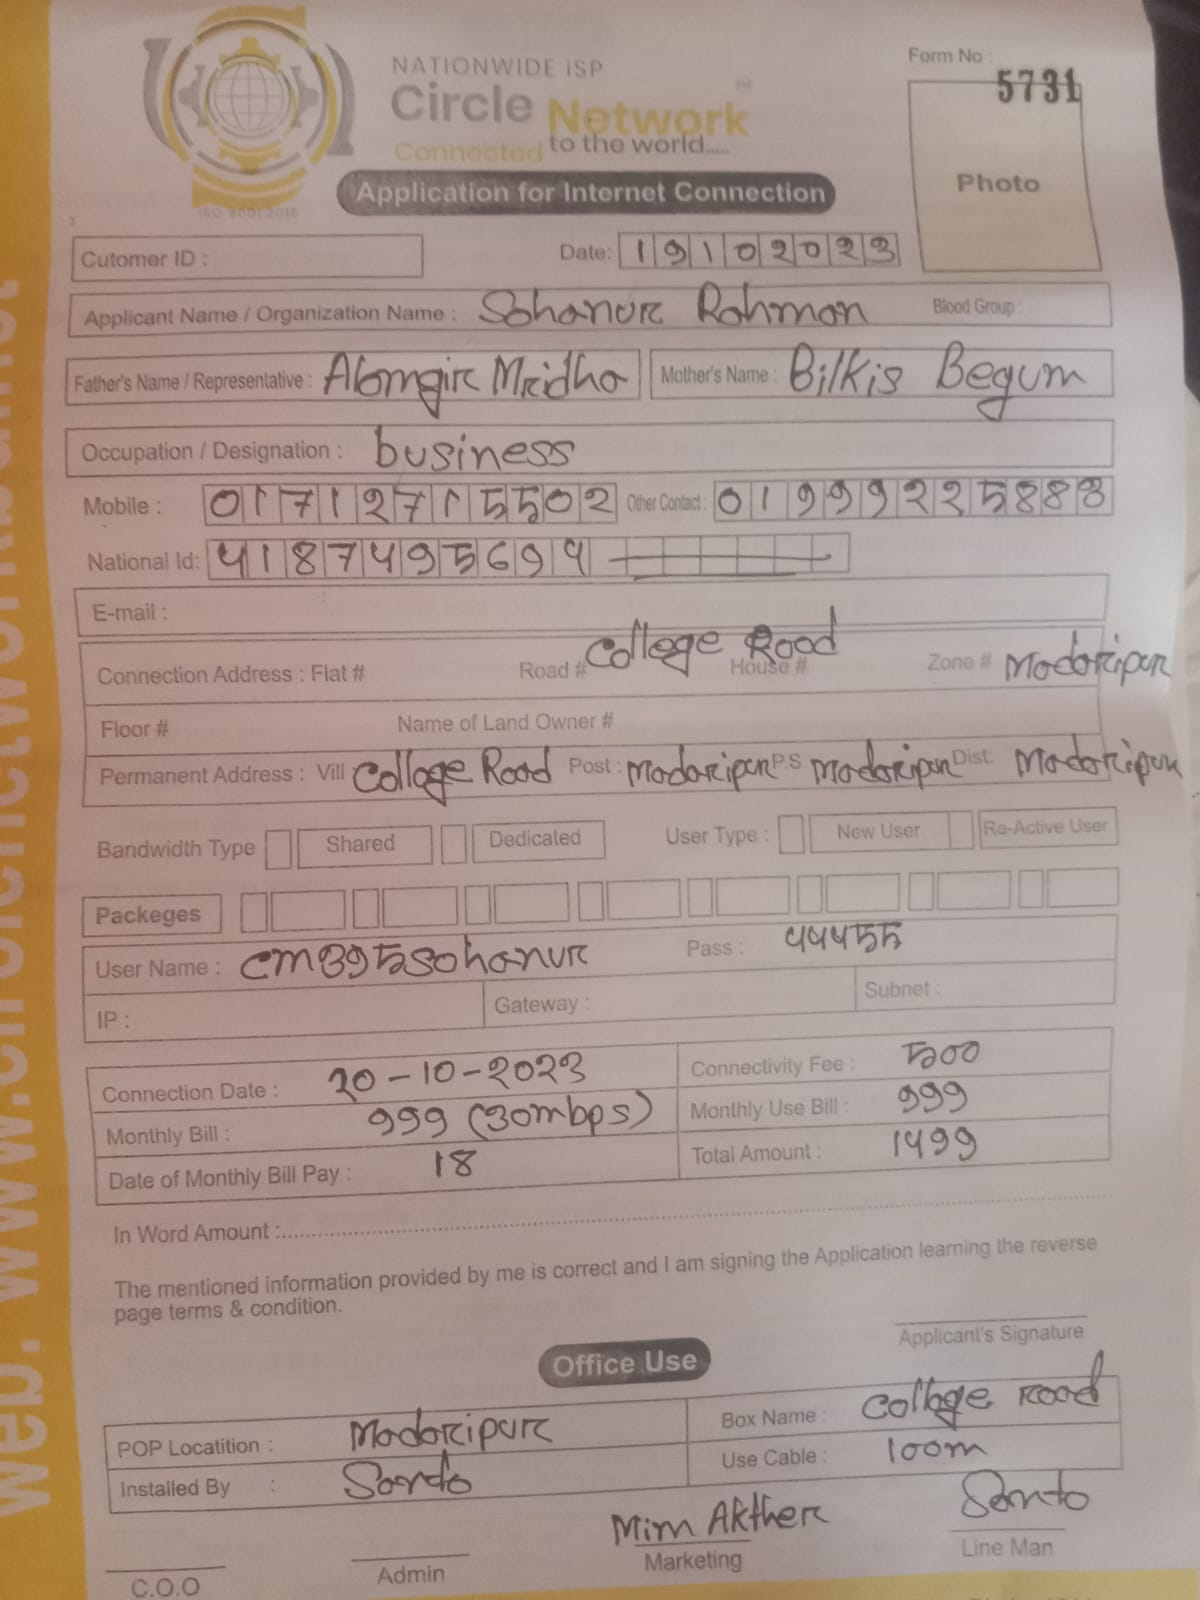 NATIONWIDE ISP
Circle Network
Connected to the world.....
ISO 9001:2015
Form No :
5731
Photo
Application for Internet Connection
Cutomer ID :
Date: 19102023
Applicant Name / Organization Name : Sohanur Rahman Blood Group :
Father's Name / Representative : Alamgir Mridha Mother's Name : Bilkis Begum
Occupation / Designation : business
Mobile : 01712715502 Other Contact : 01999225888
National Id: 4187495694
E-mail :
Connection Address : Flat # Road # College Road House # Zone # Madaripur
Floor # Name of Land Owner #
Permanent Address : Vill College Road Post : Madaripur P.S. Madaripur Dist: Madaripur
Bandwidth Type Shared Dedicated User Type : New User Re-Active User
Packeges
User Name : cm395sohanur Pass : 44455
IP : Gateway : Subnet :
Connection Date : 20-10-2023 Connectivity Fee : 500
Monthly Bill : 999 (30mbps) Monthly Use Bill : 999
Date of Monthly Bill Pay : 18 Total Amount : 1499
In Word Amount :
The mentioned information provided by me is correct and I am signing the Application learning the reverse
page terms & condition.
Applicant's Signature
Office Use
POP Locatition : Madaripur Box Name : College Road
Installed By : Santo Use Cable : 100m
Mim Akther Santo
C.O.O Admin Marketing Line Man